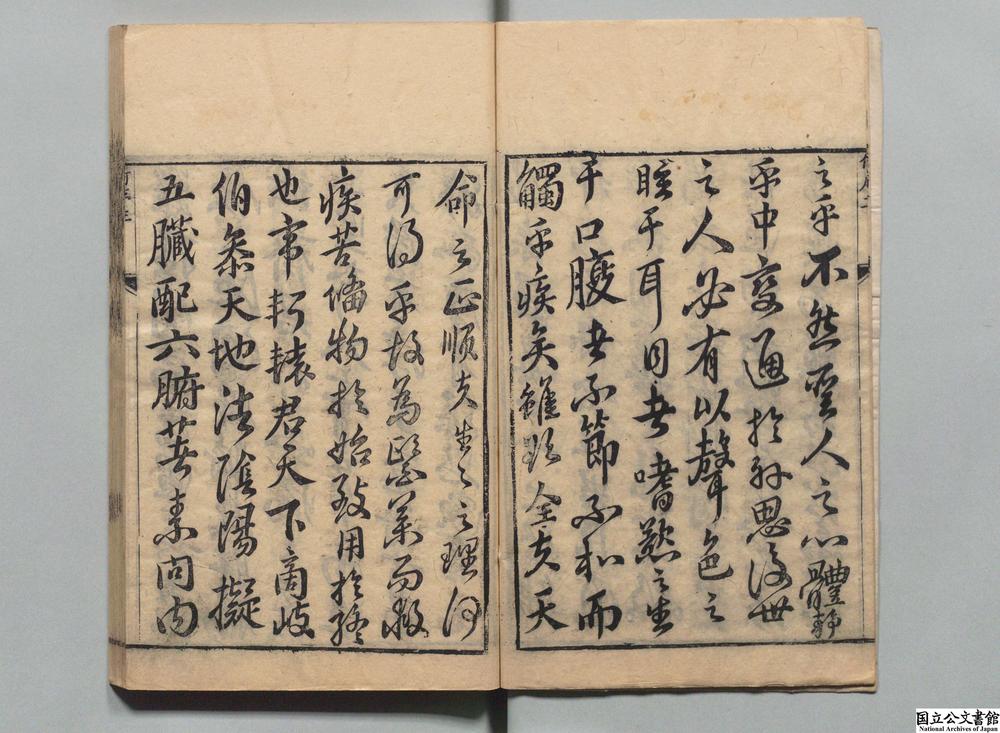 之乎不然聖人之心體靜
乎中變通於外思後世
之人必有以聲色之
眩于耳目者嗜慾之生
于口腹者不節不和而
觸乎疾矣雖欲全夫天
命之正順夫生之之理何
可得乎故為醫藥而救
疾苦備物於始致用於終
也帝軒轅君天下商岐
伯參天地法陰陽擬
五臟配六腑著素問內
国立公文書館
National Archives of Japan